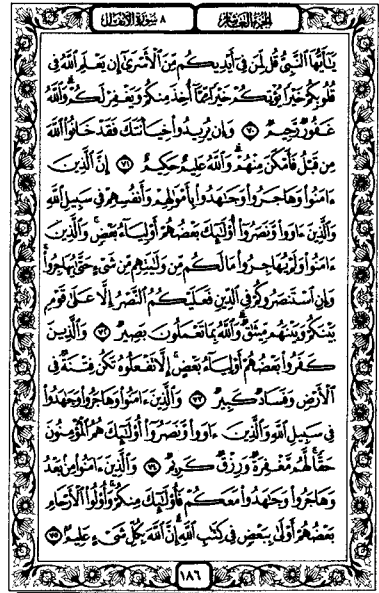 الجزء العاشر
٨ سورة الأنفال
يَٰٓأَيُّهَا ٱلنَّبِىُّ قُل لِّمَن فِىٓ أَيْدِيكُم مِّنَ ٱلْأَسْرَىٰٓ إِن يَعْلَمِ ٱللَّهُ فِى
قُلُوبِكُمْ خَيْرًا يُؤْتِكُمْ خَيْرًا مِّمَّآ أُخِذَ مِنكُمْ وَيَغْفِرْ لَكُمْ وَٱللَّهُ
غَفُورٌ رَّحِيمٌ ٧٠ وَإِن يُرِيدُوا۟ خِيَانَتَكَ فَقَدْ خَانُوا۟ ٱللَّهَ
مِن قَبْلُ فَأَمْكَنَ مِنْهُمْ وَٱللَّهُ عَلِيمٌ حَكِيمٌ ٧١ إِنَّ ٱلَّذِينَ
ءَامَنُوا۟ وَهَاجَرُوا۟ وَجَٰهَدُوا۟ بِأَمْوَٰلِهِمْ وَأَنفُسِهِمْ فِى سَبِيلِ ٱللَّهِ
وَٱلَّذِينَ ءَاوَوا۟ وَّنَصَرُوٓا۟ أُو۟لَٰٓئِكَ بَعْضُهُمْ أَوْلِيَآءُ بَعْضٍ وَٱلَّذِينَ
ءَامَنُوا۟ وَلَمْ يُهَاجِرُوا۟ مَا لَكُم مِّن وَلَٰيَتِهِم مِّن شَىْءٍ حَتَّىٰ يُهَاجِرُوا۟
وَإِنِ ٱسْتَنصَرُوكُمْ فِى ٱلدِّينِ فَعَلَيْكُمُ ٱلنَّصْرُ إِلَّا عَلَىٰ قَوْمٍۭ
بَيْنَكُمْ وَبَيْنَهُم مِّيثَٰقٌ وَٱللَّهُ بِمَا تَعْمَلُونَ بَصِيرٌ ٧٢ وَٱلَّذِينَ
كَفَرُوا۟ بَعْضُهُمْ أَوْلِيَآءُ بَعْضٍ إِلَّا تَفْعَلُوهُ تَكُن فِتْنَةٌ فِى
ٱلْأَرْضِ وَفَسَادٌ كَبِيرٌ ٧٣ وَٱلَّذِينَ ءَامَنُوا۟ وَهَاجَرُوا۟ وَجَٰهَدُوا۟
فِى سَبِيلِ ٱللَّهِ وَٱلَّذِينَ ءَاوَوا۟ وَّنَصَرُوٓا۟ أُو۟لَٰٓئِكَ هُمُ ٱلْمُؤْمِنُونَ
حَقًّا لَّهُم مَّغْفِرَةٌ وَرِزْقٌ كَرِيمٌ ٧٤ وَٱلَّذِينَ ءَامَنُوا۟ مِنۢ بَعْدُ
وَهَاجَرُوا۟ وَجَٰهَدُوا۟ مَعَكُمْ فَأُو۟لَٰٓئِكَ مِنكُمْ وَأُو۟لُوا۟ ٱلْأَرْحَامِ
بَعْضُهُمْ أَوْلَىٰ بِبَعْضٍ فِى كِتَٰبِ ٱللَّهِ إِنَّ ٱللَّهَ بِكُلِّ شَىْءٍ عَلِيمٌۢ ٧٥
١٨٦